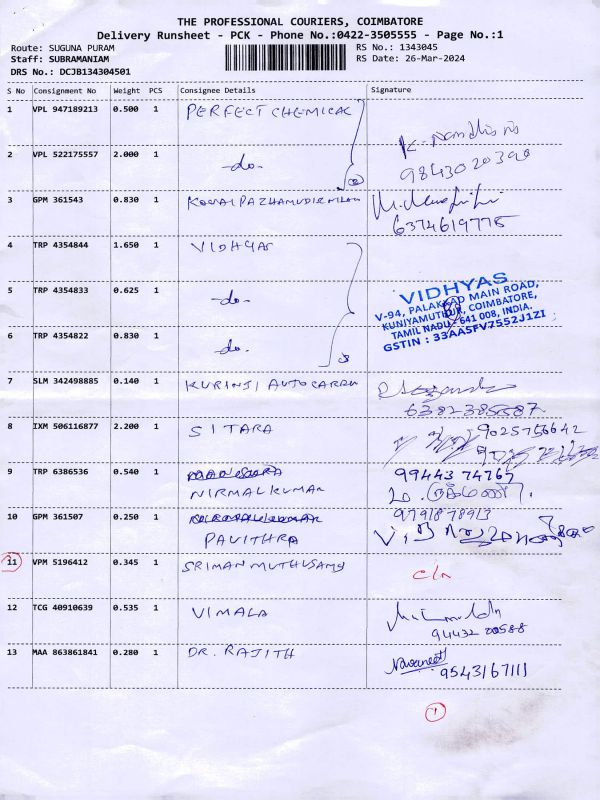 THE PROFESSIONAL COURIERS, COIMBATORE
Delivery Runsheet - PCK - Phone No.:0422-3505555 - Page No.:1
Route: SUGUNA PURAM
RS No.: 1343045
Staff: SUBRAMANIAM
RS Date: 26-Mar-2024
DRS No.: DCJB134304501
S No Consignment No Weight PCS Consignee Details Signature
1 VPL 947189213 0.500 1 PERFECT CHEMICAL
2 VPL 522175557 2.000 1 -do-
9843020390
3 GPM 361543 0.830 1
6374619775
4 TRP 4354844 1.650 1 VIDHYAS
5 TRP 4354833 0.625 1 -do-
VIDHYAS
V-94, PALAKKAD MAIN ROAD,
KUNIYAMUTHUR, COIMBATORE,
TAMIL NADU - 641 008, INDIA.
GSTIN : 33AASFV7552J1ZI
6 TRP 4354822 0.830 1 -do.
7 SLM 342498885 0.140 1 KURINJI AUTOCARDU
6382385587
8 IXM 506116877 2.200 1 SITARA 9025756642
9 TRP 6386536 0.540 1 99443 74767
NIRMALKUMAR
10 GPM 361507 0.250 1 9791878913
PAVITHRA
11 VPM 5196412 0.345 1 SRIMAN MUTHUSAMY
12 TCG 40910639 0.535 1 VIMALA
94432 20588
13 MAA 863861841 0.280 1 DR. RAJITH Navaneet
9543167111
1